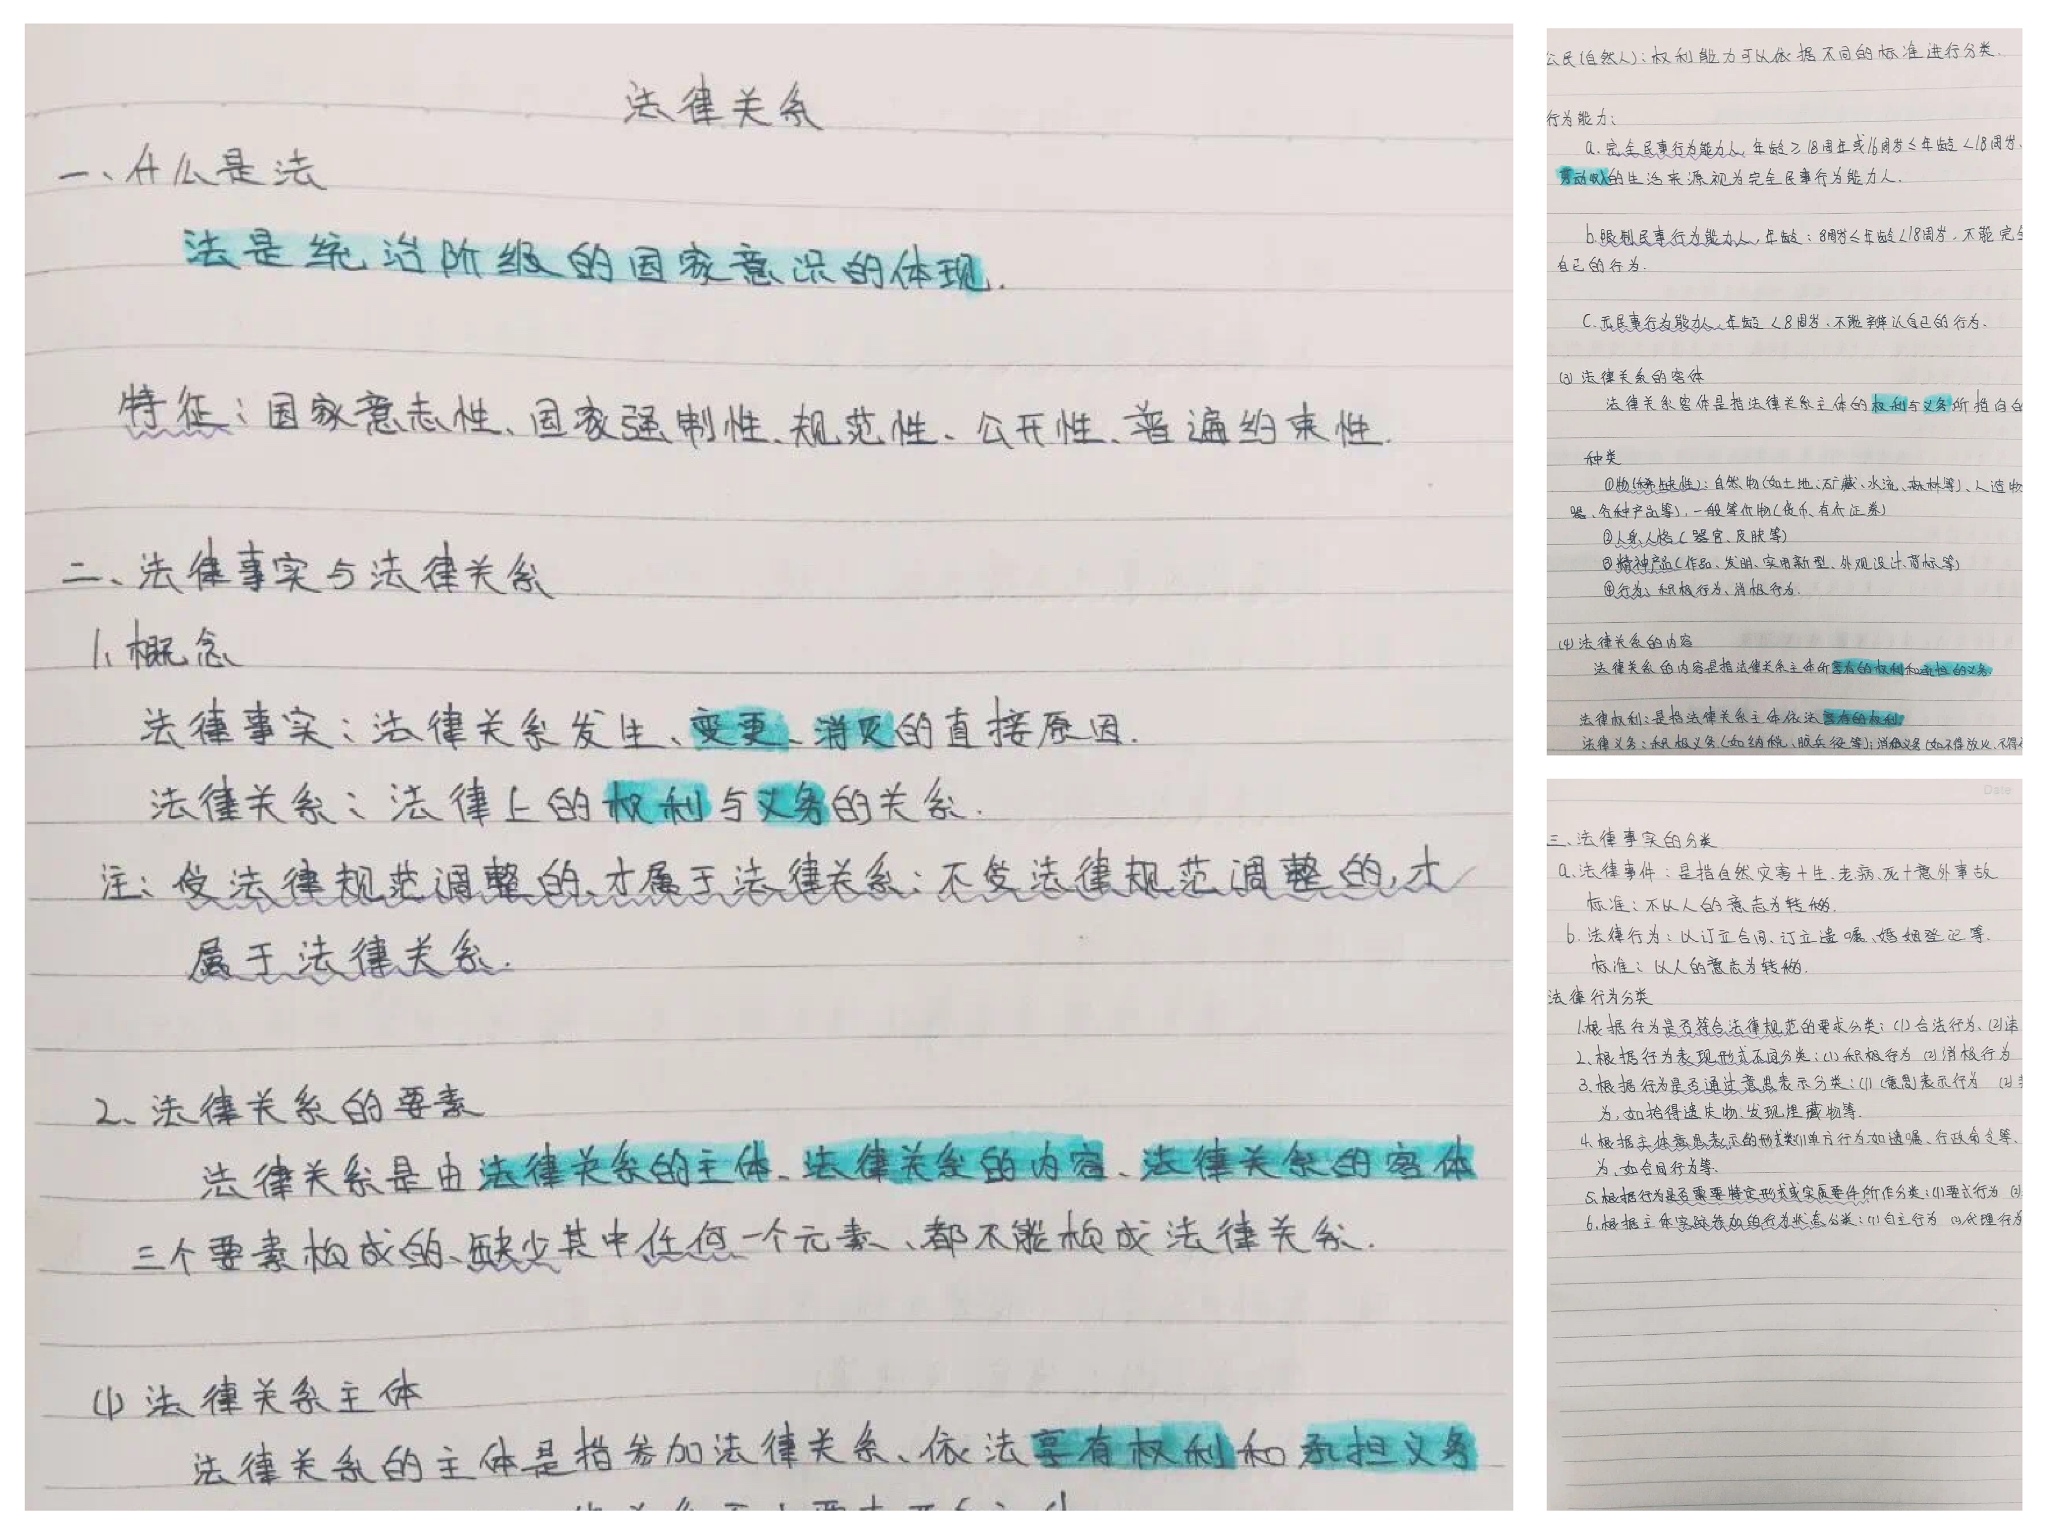 法律关系
一、什么是法
法是统治阶级的国家意识的体现.
特征:国家意志性、国家强制性、规范性、公开性、普遍约束性.
二、法律事实与法律关系
1、概念
法律事实:法律关系发生、变更、消灭的直接原因.
法律关系:法律上的权利与义务的关系.
注:受法律规范调整的、才属于法律关系;不受法律规范调整的,才
属于法律关系.
2、法律关系的要素
法律关系是由法律关系的主体、法律关系的内容、法律关系的客体
三个要素构成的、缺少其中任何一个元素、都不能构成法律关系.
(1)法律关系主体
法律关系的主体是指参加法律关系、依法享有权利和承担义务
公民(自然人):权利能力可以依据不同的标准进行分类.
行为能力:
a.完全民事行为能力人,年龄≥18周年或16周岁≤年龄<18周岁、
的生活来源视为完全民事行为能力人.
b.限制民事行为能力人,年龄:8周岁≤年龄<18周岁,不能完全
自己的行为.
C.无民事行为能力人、年龄<8周岁、不能辨认自己的行为.
(3)法律关系的客体
法律关系客体是指法律关系主体的权利与义务所指向的
种类
①物(稀缺性):自然物(如土地、矿藏、水流、森林等)、人造物
器、各种产品等),一般等价物(货币、有价证券)
②人身人格(器官、皮肤等)
③精神产品(作品、发明、实用新型、外观设计、商标等)
④行为:积极行为、消极行为.
(4)法律关系的内容
法律关系的内容是指法律关系主体所享有的权利和承担的义务
法律权利:是指法律关系主体依法享有的权利
法律义务:积极义务(如纳税、服兵役等);消极义务(如不得放火、不得
Date
三、法律事实的分类
a.法律事件:是指自然灾害+生、老、病、死+意外事故
标准:不以人的意志为转移.
b.法律行为:以订立合同、订立遗嘱、婚姻登记等.
标准:以人的意志为转移.
法律行为分类
1.根据行为是否符合法律规范的要求分类:(1)合法行为、(2)违
2、根据行为表现形式不同分类:(1)积极行为 (2)消极行为
3.根据行为是否通过意思表示分类:(1)(意思)表示行为 (2)
为,如拾得遗失物、发现埋藏物等.
4.根据主体意思表示的形式类(1)单方行为如遗嘱、行政命令等、
为、如合同行为等.
5.根据行为是否需要特定形式或实质要件所作分类:(1)要式行为 (2)
6.根据主体实际参加的行为状态分类:(1)自主行为 (2)代理行为